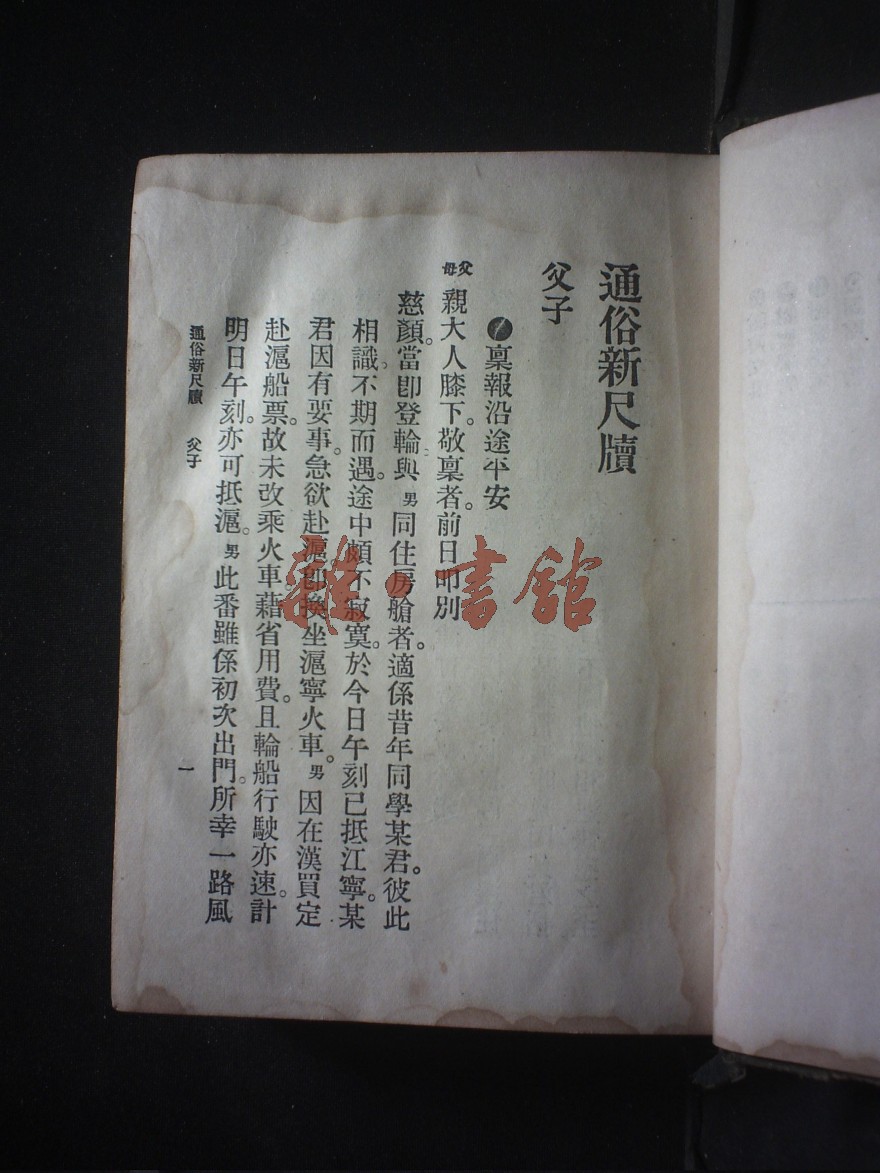 通俗新尺牘
父子
稟報沿途平安
父母親大人膝下。敬稟者。前日叩別
慈顏。當卽登輪與男同住房艙者。適係昔年同學某君。彼此
相識。不期而遇。途中頗不寂寞。於今日午刻已抵江寧。某
君因有要事。急欲赴滬。卽換坐滬寧火車。男因在漢買定
赴滬船票。故未改乘火車。藉省用費。且輪船行駛亦速。計
明日午刻。亦可抵滬。男此番雖係初次出門。所幸一路風
通俗新尺牘 父子 一
雜·書館